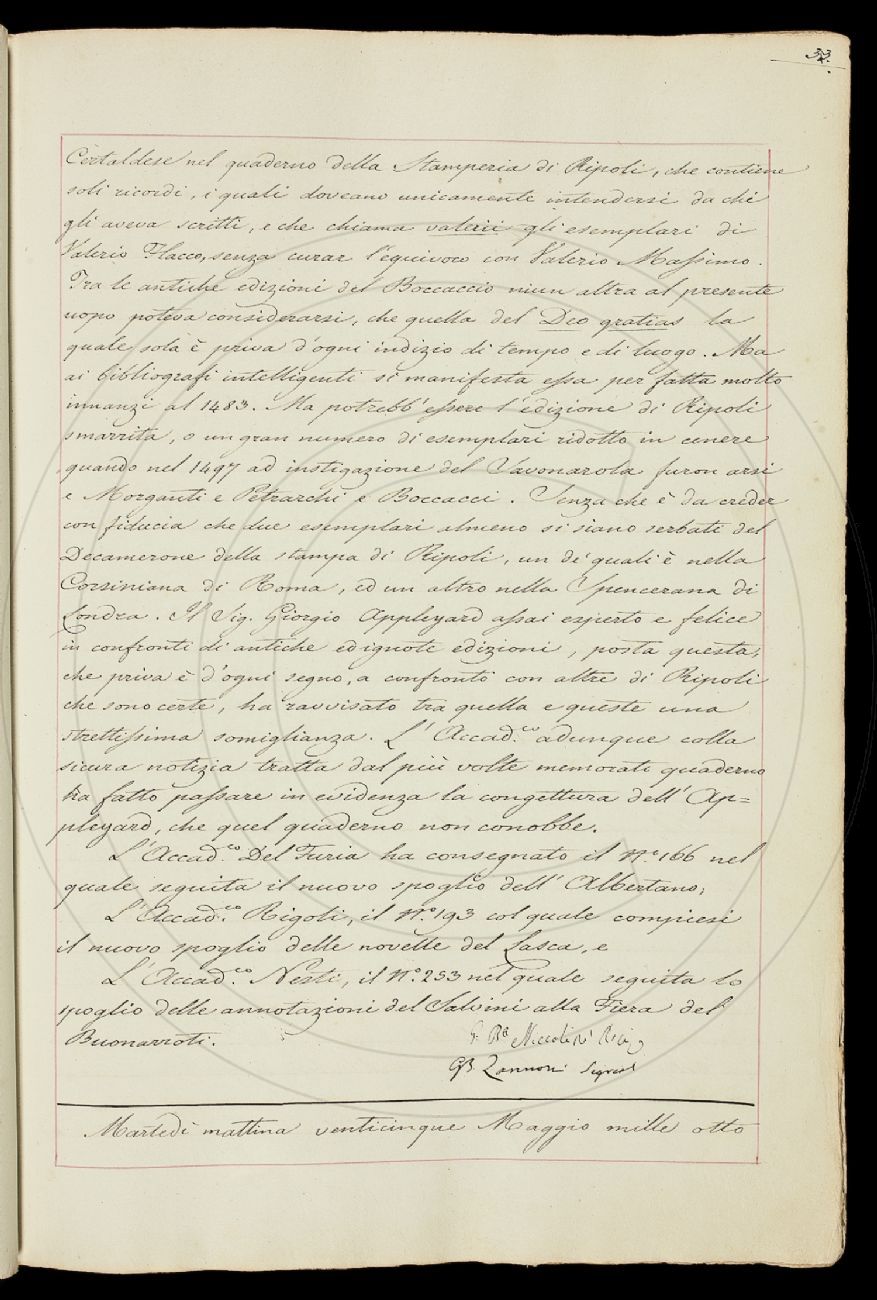 33.
Certaldese nel quaderno della Stamperia di Ripoli, che contiene
soli ricordi, i quali doveano unicamente intendersi da chi
gli aveva scritti, e che chiama valerii gli esemplari di
Valerio Flacco, senza curar l'equivoco con Valerio Massimo.
Tra le antiche edizioni del Boccaccio niun altra al presente
uopo poteva considerarsi, che quella del Deo gratias la
quale sola è priva d'ogni indizio di tempo e di luogo. Ma
ai bibliografi intelligenti si manifesta essa per fatta molto
innanzi al 1483. Ma potrebb'essere l'edizione di Ripoli
smarrita, o un gran numero di esemplari ridotto in cenere
quando nel 1497 ad instigazione del Savonarola furon arsi
e Morganti e Petrarchi e Boccacci. Senza che è da creder
con fiducia che due esemplari almeno si siano serbati del
Decamerone della stampa di Ripoli, un de' quali è nella
Corsiniana di Roma, ed un altro nella Spencerana di
Londra. Il Sig. Giorgio Appleyard assai esperto e felice
in confronti di antiche ed ignote edizioni, posta questa,
che priva è d'ogni segno, a confronto con altre di Ripoli
che sono certe, ha ravvisato tra quella e queste una
strettissima somiglianza. L'Accad.co adunque colla
sicura notizia tratta dal più volte memorato quaderno
ha fatto passare in evidenza la congettura dell'Ap=
pleyard, che quel quaderno non conobbe.
L'Accad.co Del Furia ha consegnato il N.o 166 nel
quale seguita il nuovo spoglio dell'Albertano;
L'Accad.co Rigoli, il N.o 193 col quale compiesi
il nuovo spoglio delle novelle del Lasca, e
L'Accad.co Nesti, il N.o 253 nel quale seguita lo
spoglio delle annotazioni del Salvini alla Fiera del
Buonarroti.
G. Ba Niccolini
GB. Zannoni Segret
Martedì mattina venticinque Maggio mille otto